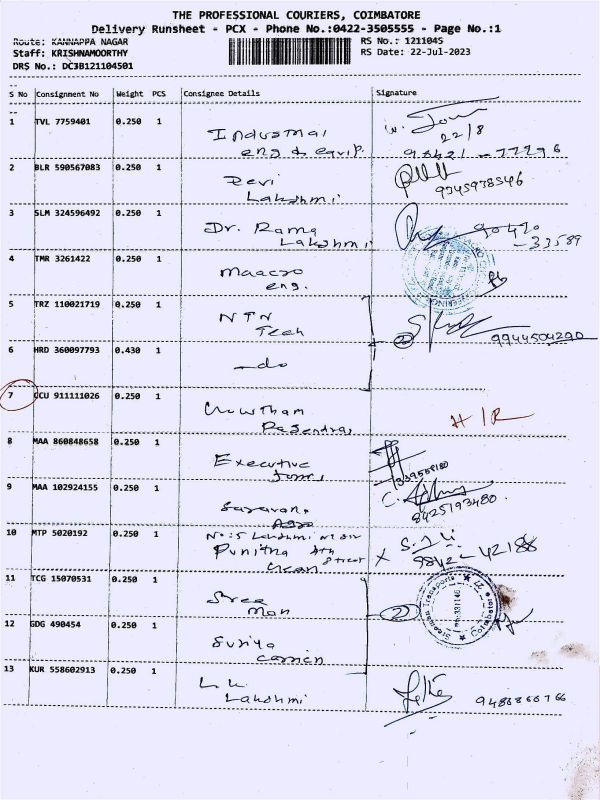 THE PROFESSIONAL COURIERS, COIMBATORE
Delivery Runsheet - PCX - Phone No.:0422-3505555 - Page No.:1
Route: KANNAPPA NAGAR
RS No.: 1211045
Staff: KRISHNAMOORTHY
RS Date: 22-Jul-2023
DRS No.: DC3B121104501
S No Consignment No Weight PCS Consignee Details Signature
1 TVL 7759401 0.250 1
Industrial
22/8
2 BLR 590567083 0.250 1
Devi
Lakshmi
9345938546
3 SLM 324596492 0.250 1
Dr. Rama
Lakshmi
90420
-33589
4 TMR 3261422 0.250 1
Maacro
eng.
5 TRZ 110021719 0.250 1
NTN
Tech
2
9944504290
6 HRD 360097793 0.430 1
-do
7 CCU 911111026 0.250 1
Gowtham
H/R
8 MAA 860848658 0.250 1
Executive
9 MAA 102924155 0.250 1
8425193480
10 MTP 5020192 0.250 1
No:5 Lakshmi
Punitha 4th
Street
9842-42188
11 TCG 15070531 0.250 1
Sree
Man
2
Sreeman Transports
Coimbatore
12 GDG 490454 0.250 1
Suriya
13 KUR 558602913 0.250 1
Lakshmi
9486866766